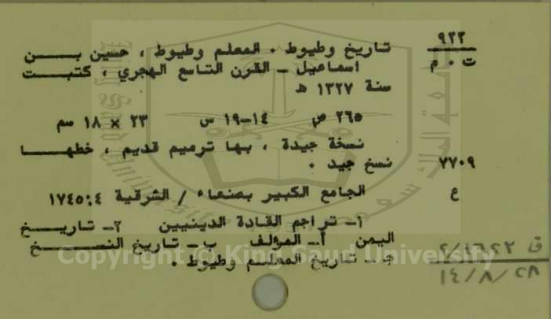 ٩٢٢ تاريخ وطيوط ٠ المعلم وطيوط ، حسين بن
ت ٠ م اسماعيل - القرن التاسع الهجري ، كتبت
سنة ١٣٢٧ هـ
٢٦٥ ص ١٤-١٩ س ٢٣ × ١٨ سم
نسخة جيدة ، بها ترميم قديم ، خطها
٧٧٠٩ نسخ جيد ٠
ع الجامع الكبير بصنعاء / الشرقية ١٧٤٥:٤
١- تراجم القادة الدينيين ٢- تاريخ
اليمن أ- المؤلف ب- تاريخ النسخ
ج- تاريخ المعلم وطيوط ٠
Copyright (c) King Saud University
١٤/٨/٢٨